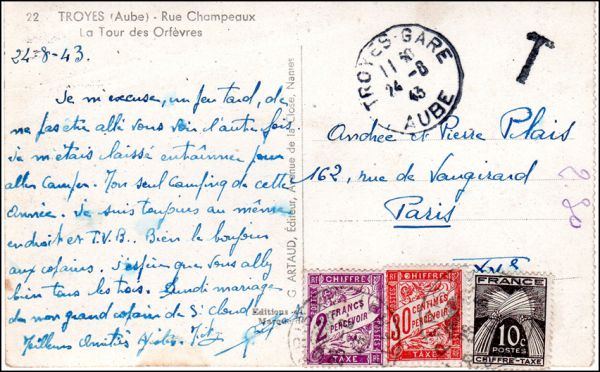 22 TROYES (Aube) - Rue Champeaux
La Tour des Orfèvres
24-8-43.
Je m'excuse, un peu tard, de
ne pas être allé vous voir l'autre fois
je m'étais laissé entraînner pour
aller camper. Mon seul camping de cette
année. Je suis toujours au même
endroit et T.V.B. Bien le bonjour
aux copains. J'espère que vous allez
bien tous les trois. Lundi mariage
de mon grand copain de St Cloud
Meilleures Amitiés
G. ARTAUD, Éditeur, Avenue de la Close, Nantes
Editions
TROYES-GARE
11 30
24 -8
43
AUBE
T
Andrée et Pierre Plais
162, rue de Vaugirard
Paris
XVe
2.80
RF CHIFFRE
2 FRANCS
A PERCEVOIR
TAXE
RF CHIFFRE
30 CENTIMES
A PERCEVOIR
TAXE
FRANCE
10c
POSTES
CHIFFRE-TAXE